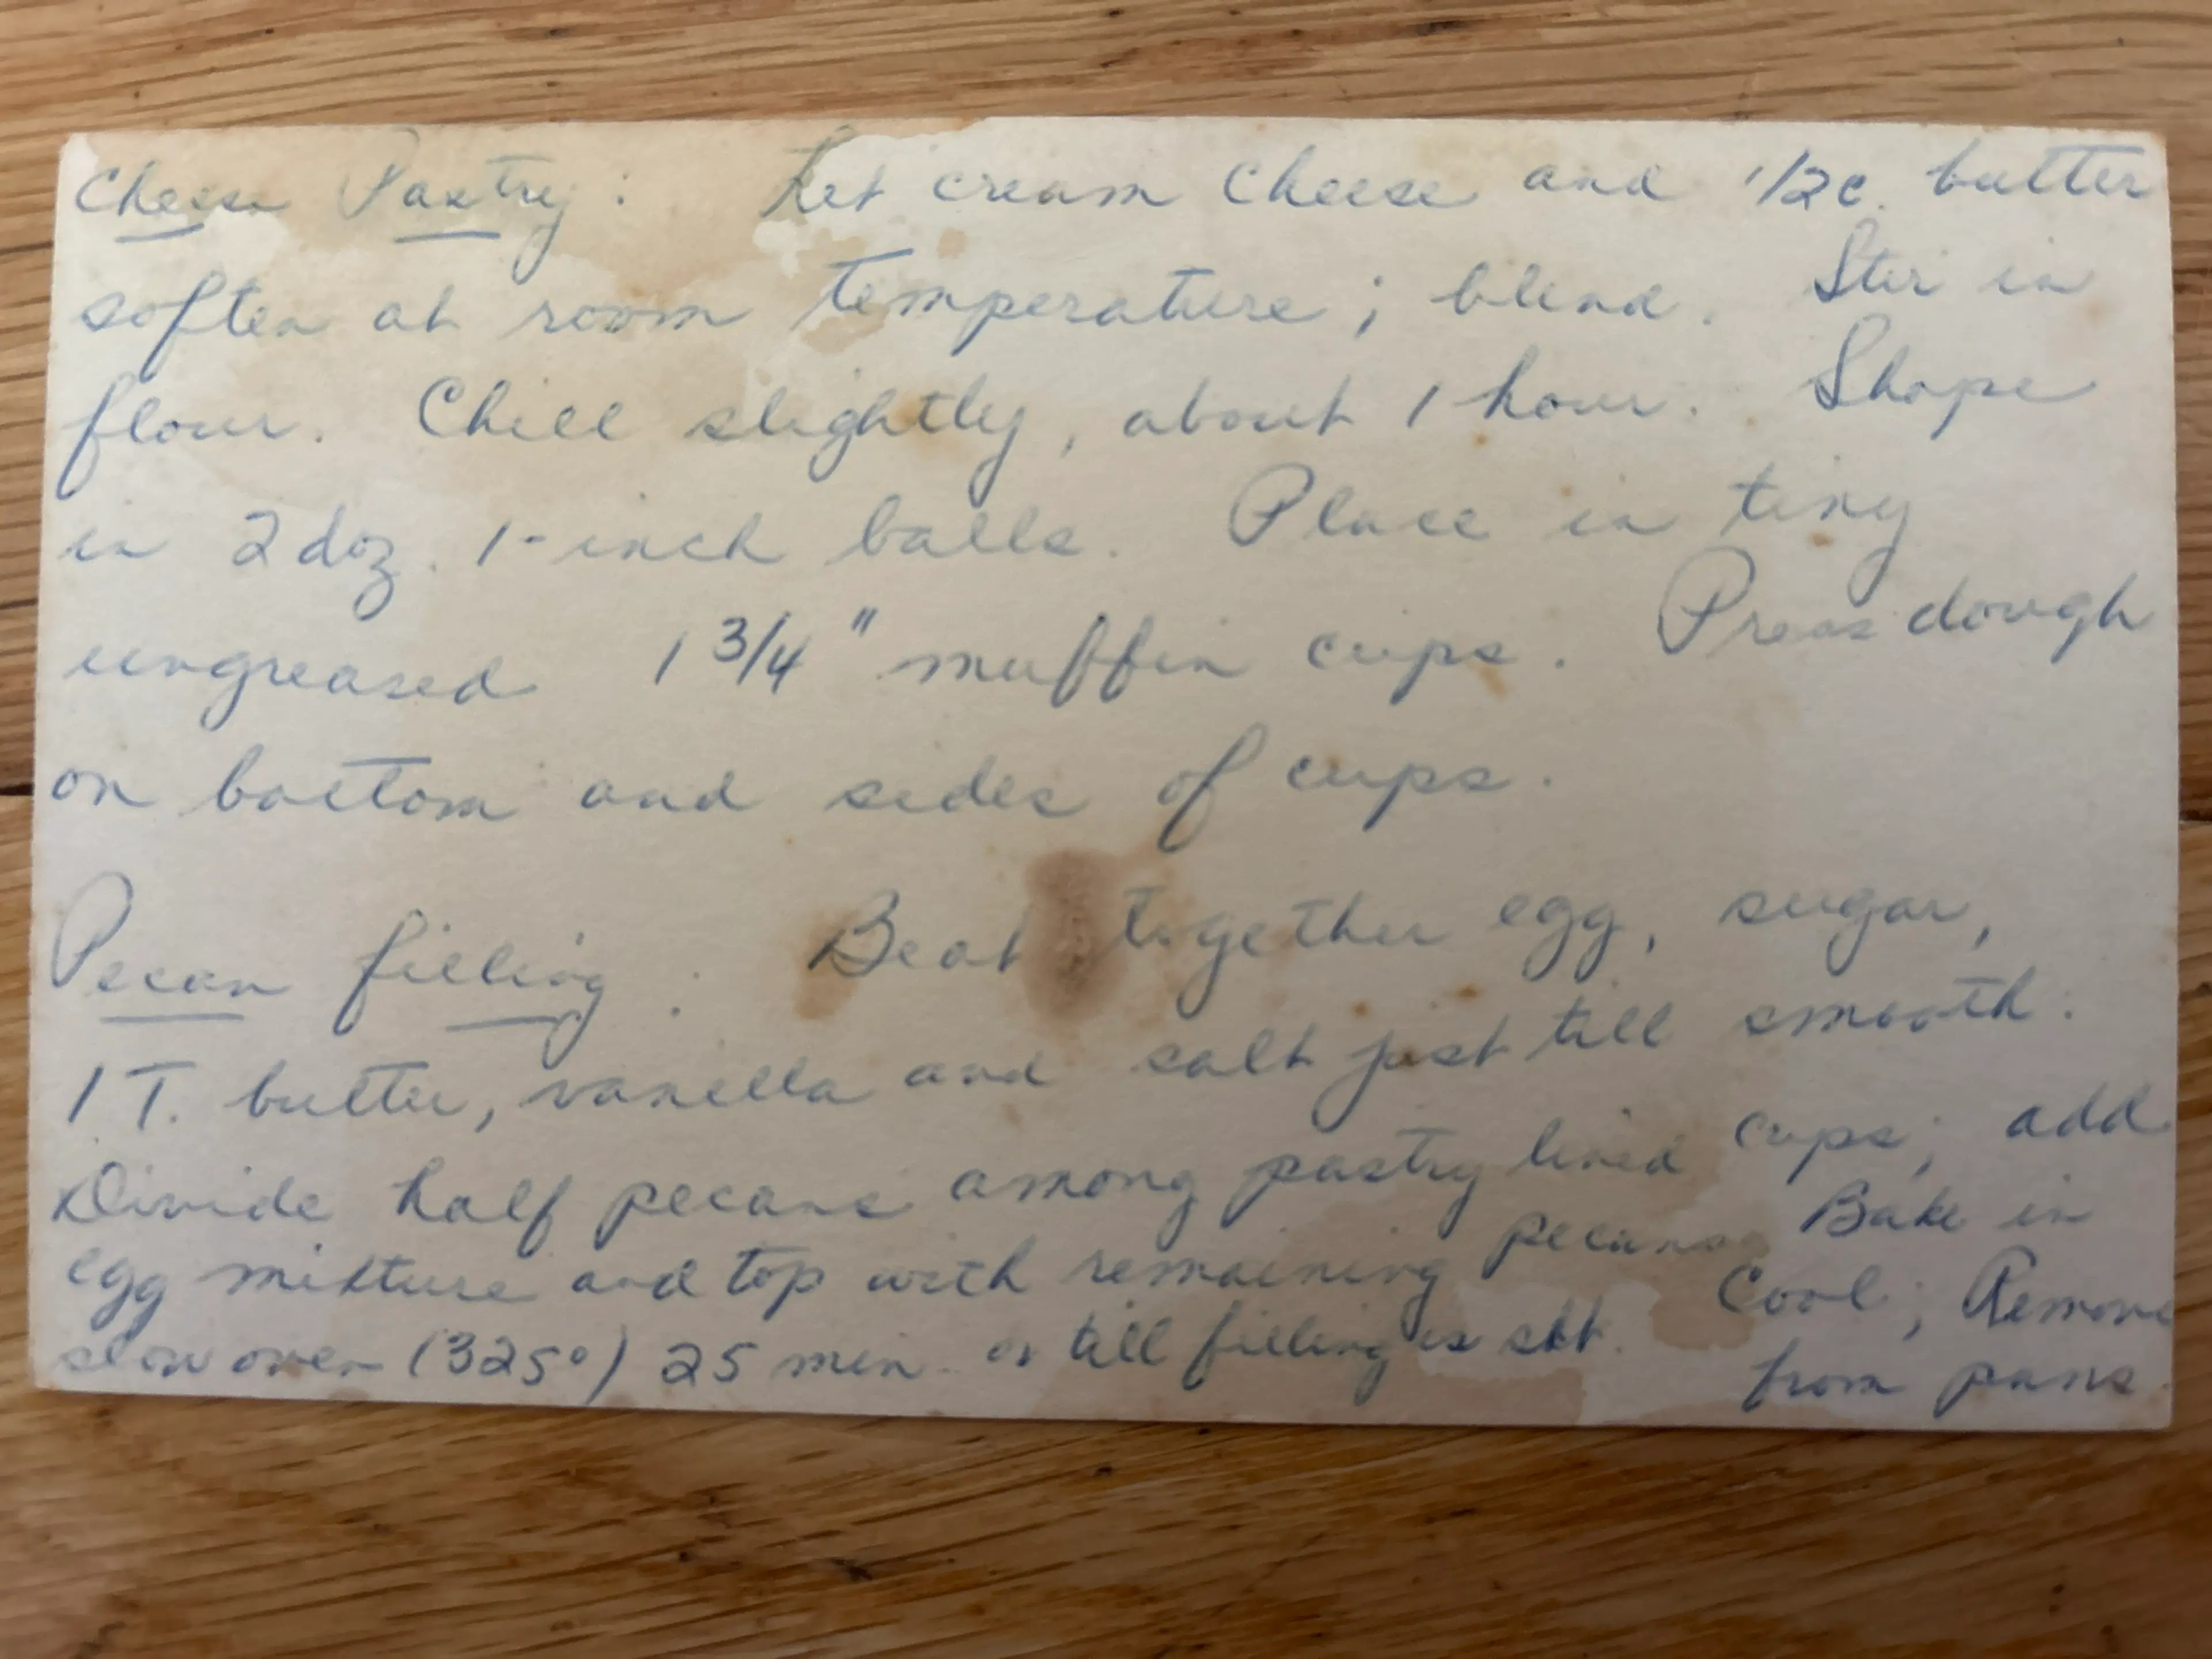 Cheese Pastry: Let cream cheese and 1/2 c. butter
soften at room temperature; blend. Stir in
flour. Chill slightly, about 1 hour. Shape
in 2 doz. 1-inch balls. Place in tiny
ungreased 1 3/4" muffin cups. Press dough
on bottom and sides of cups.
Pecan filling: Beat together egg, sugar,
1 T. butter, vanilla and salt just till smooth.
Divide half pecans among pastry lined cups; add
egg mixture and top with remaining pecans. Bake in
slow oven (325°) 25 min. or till filling is set. Cool; Remove
from pans.